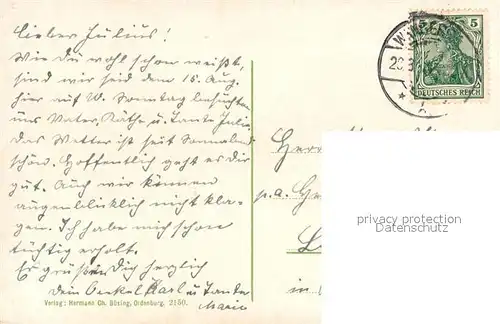 Lieber Julius!
Wie du wohl schon weißt,
sind wir seid dem 15. Aug.
hier auf W. Sonntag besuchten
uns Vater, Käthe u. Tante Julie.
Das Wetter ist seit Sonnabend
schön. Hoffentlich geht es dir
gut. Auch wir können
augenblicklich nicht kla-
gen. Ich habe mich schon
tüchtig erholt.
Es grüßen Dich herzlich
Dein Onkel Karl u Tante
Marie
Verlag: Hermann Ch. Büsing, Oldenburg. 2150.
5
DEUTSCHES REICH
Her
p.a.
in
privacy protection
Datenschutz